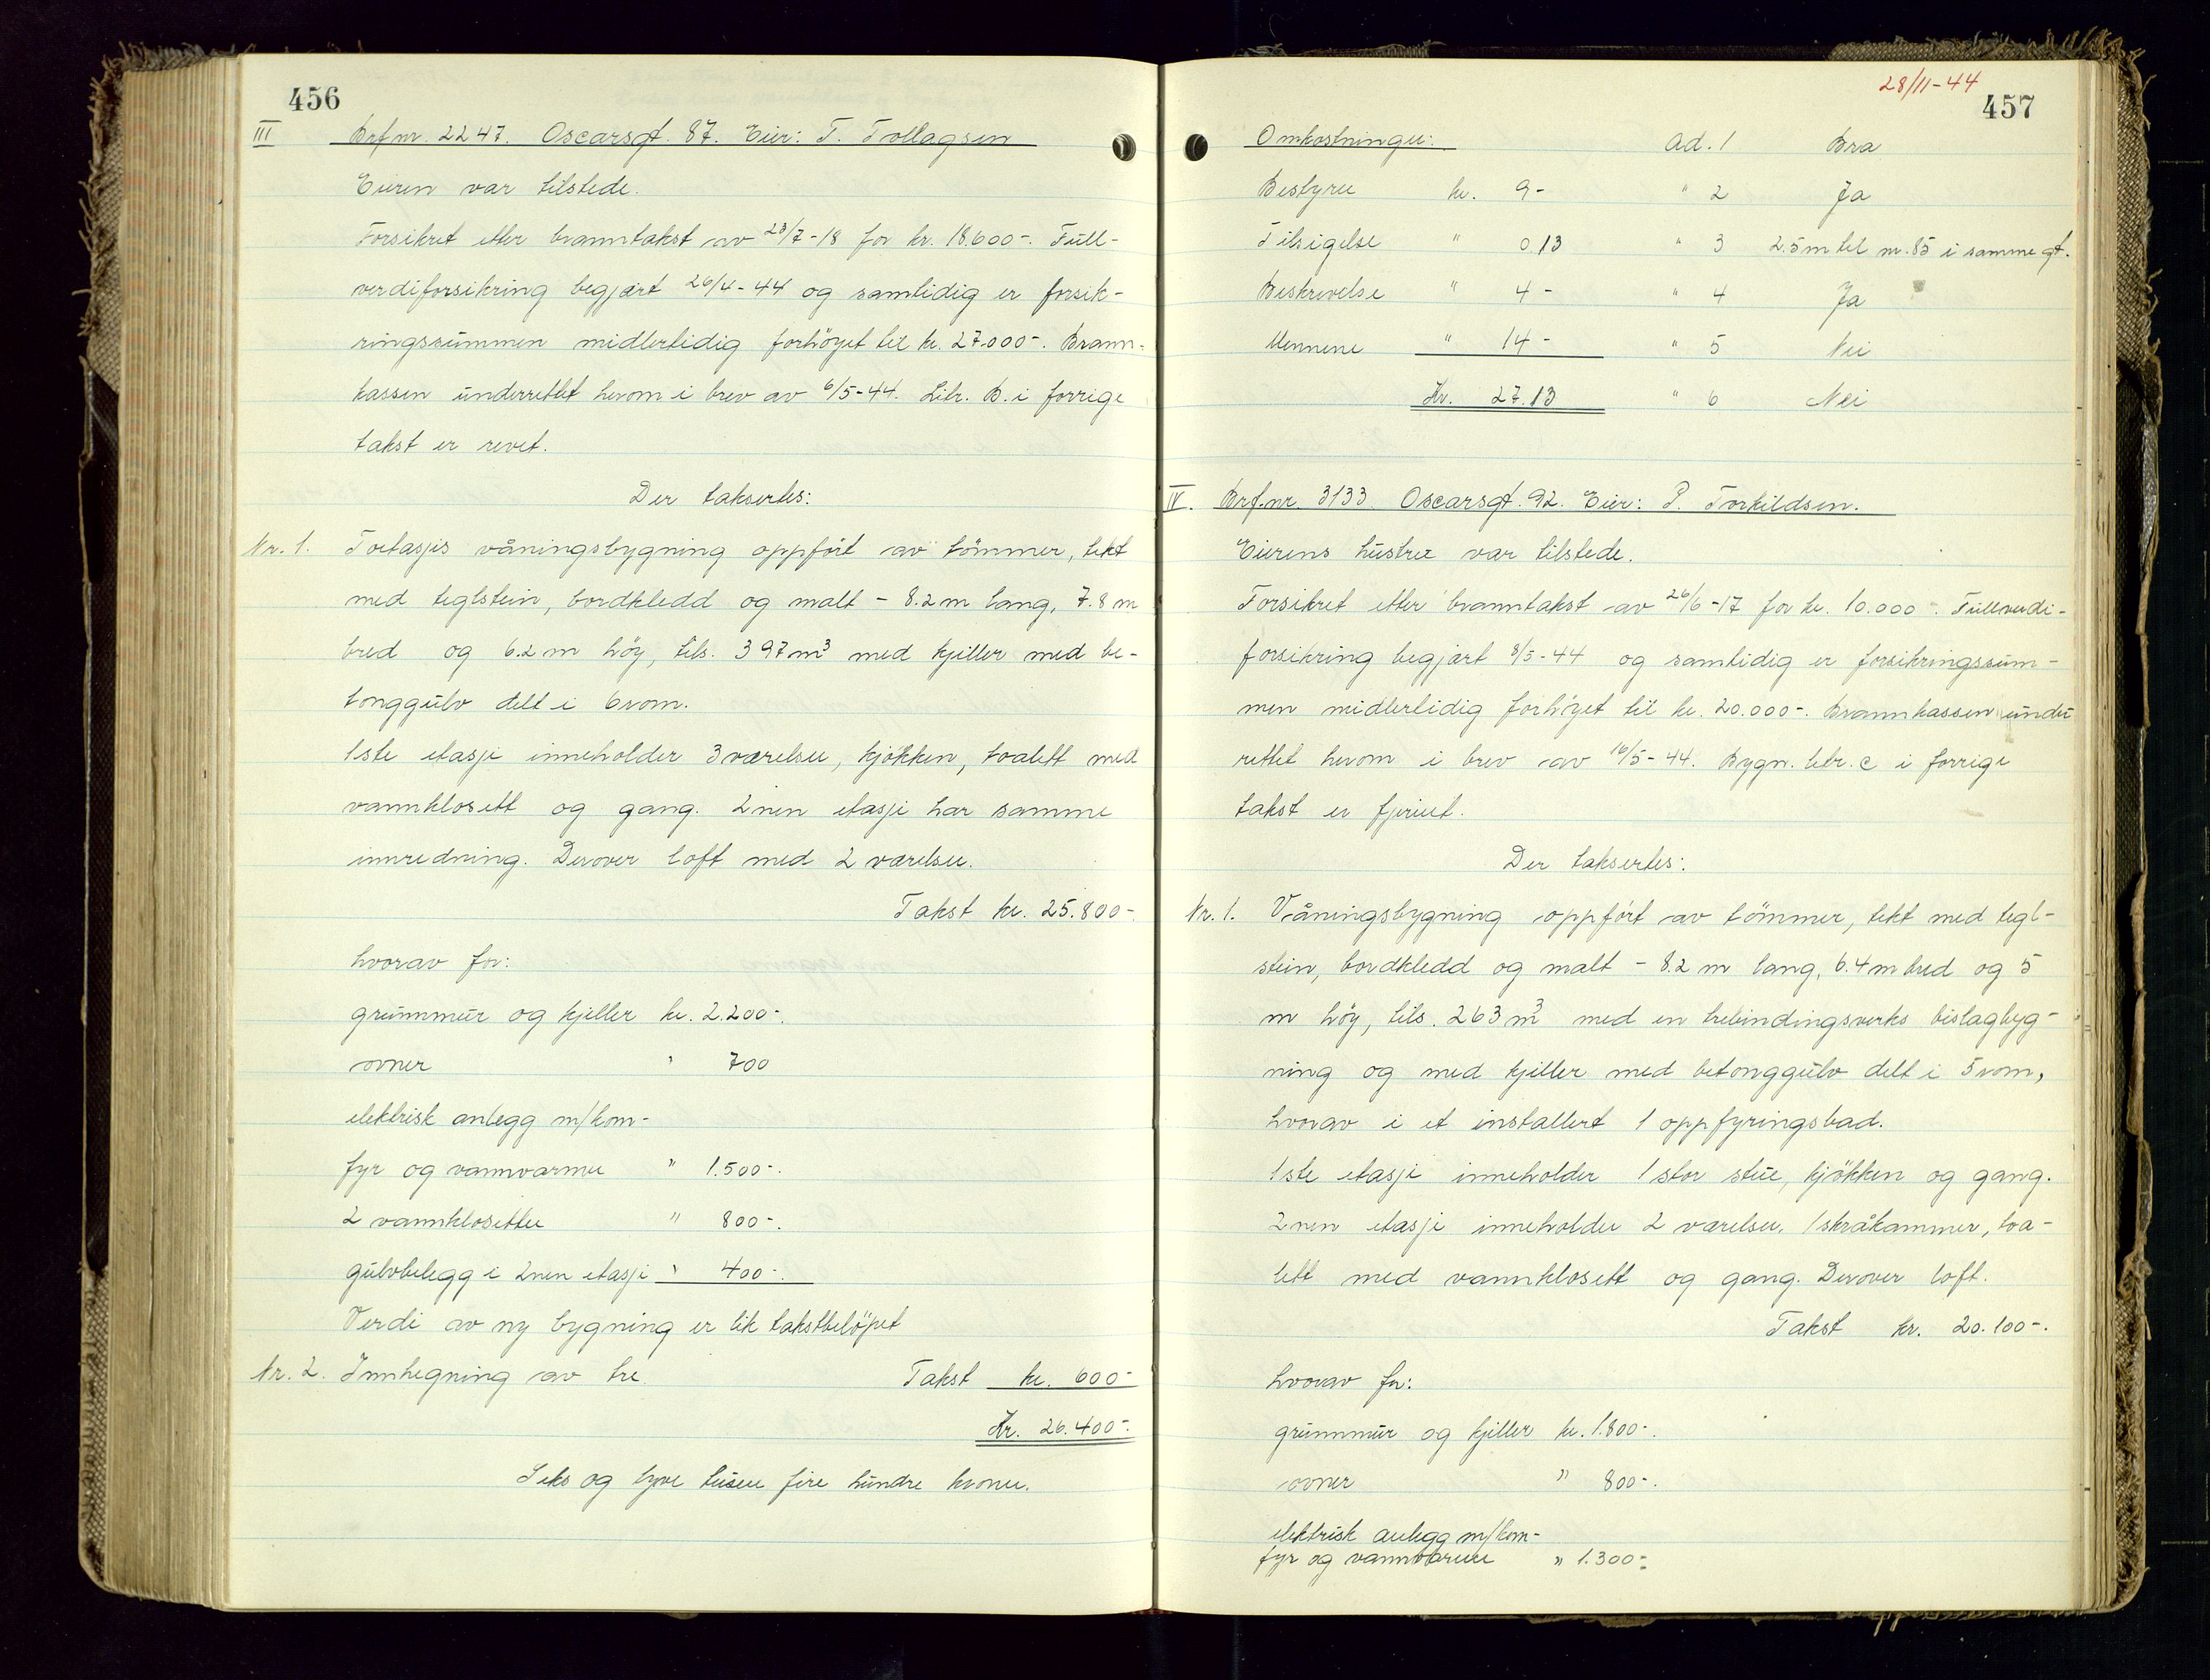 456
III Brf.nr. 2247. Oscarsgt. 87. Eier: T. Tollagsen
Eieren var tilstede.
Forsikret etter branntakst av 23/7-18 for kr. 18.600-. Full-
verdiforsikring begjært 26/4-44 og samtidig er forsik-
ringssummen midlertidig forhöyet til kr. 27.000-. Brann-
kassen underrettet herom i brev av 6/5-44. Litr. B. i forrige
takst er revet.
Der takseres:
Nr. 1. Toetasjes våningsbygning oppfört av tömmer, tekt
med teglstein, bordkledd og malt - 8.2 m lang, 7.8 m
bred og 6.2 m höy, tils. 397 m³ med kjeller med be-
tonggulv delt i 6 rom.
1ste etasje inneholder 3 værelser, kjökken, toalett med
vannklosett og gang. 2nen etasje har samme
innredning. Derover loft med 2 værelser.
Takst kr. 25.800-.
hvorav for:
grunnmur og kjeller kr. 2.200-.
ovner " 700
elektrisk anlegg m/kom-
fyr og vannvarmer " 1.500-.
2 vannklosetter " 800-.
gulvbelegg i 2nen etasje " 400-.
Verdi av ny bygning er lik takstbelöpet
Nr. 2. Innhegning av tre. Takst kr. 600-
Kr. 26.400-.
Seks og tyve tusen fire hundre kroner.
28/11-44
457
Omkostninger: Ad. 1 Bra
Bestyrer kr. 9- " 2 Ja
Tilsigelse " 0.13 " 3 2.5 m til nr. 85 i samme gt.
Beskrivelse " 4- " 4 Ja
Mennene " 14- " 5 Nei
Kr. 27.13 " 6 Nei
IV. Brf.nr. 3133. Oscarsgt. 92. Eier: P. Torkildsen.
Eierens hustru var tilstede.
Forsikret etter branntakst av 26/6-17 for kr. 10.000-. Fullverdi-
forsikring begjært 8/5-44 og samtidig er forsikringssum-
men midlertidig forhöyet til kr. 20.000-. Brannkassen under
rettet herom i brev av 16/5-44. Bygn. litr. c i forrige
takst er fjernet.
Der takseres:
Nr. 1. Våningsbygning oppfört av tömmer, tekt med tegl-
stein, bordkledd og malt - 8.2 m lang, 6.4 m bred og 5
m höy, tils. 263 m³ med en trebindingsverks bislagbyg-
ning og med kjeller med betonggulv delt i 5 rom,
hvorav i et installert 1 oppfyringsbad.
1ste etasje inneholder 1 stor stue, kjökken og gang.
2nen etasje inneholder 2 værelser, 1 skråkammer, toa-
lett med vannklosett og gang. Derover loft.
Takst kr. 20.100-.
hvorav for:
grunnmur og kjeller kr. 1.800-.
ovner " 800-.
elektrisk anlegg m/kom-
fyr og vannvarmer " 1.300-